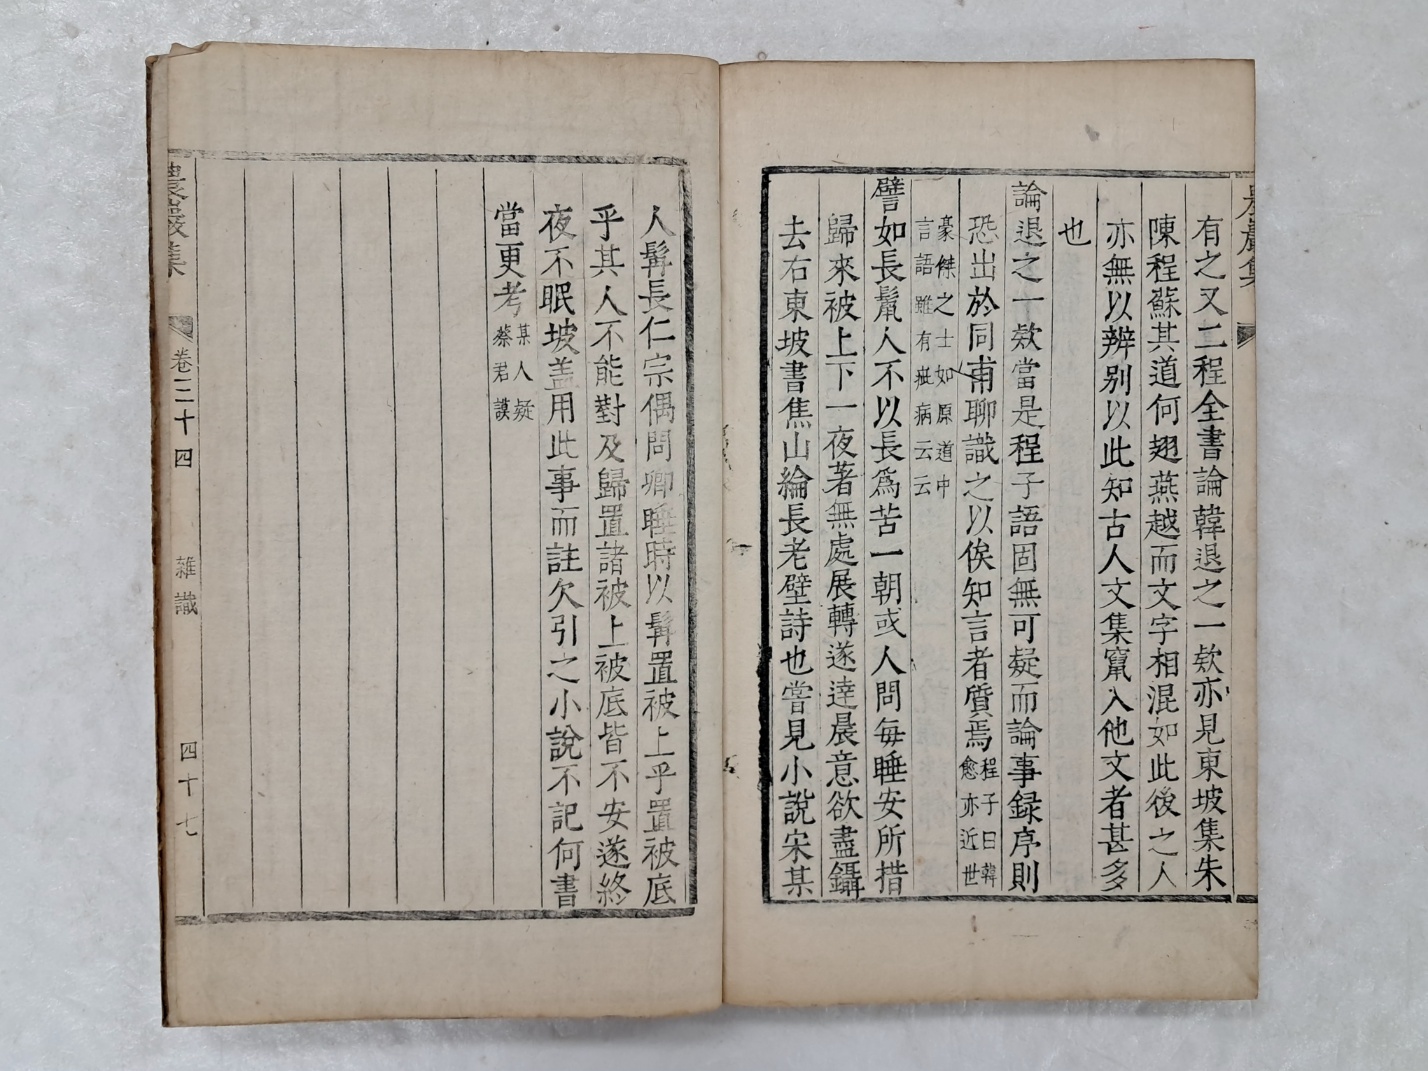 有之又二程全書論韓退之一欵亦見東坡集朱
陳程蘇其道何翅燕越而文字相混如此後之人
亦無以辨别以此知古人文集竄入他文者甚多
也
論退之一欵當是程子語固無可疑而論事録序則
恐出於同甫聊識之以俟知言者質焉程子曰韓
愈亦近世
豪傑之士如原道中
言語雖有疵病云云
譬如長鬣人不以長爲苦一朝或人問每睡安所措
歸來被上下一夜著無處展轉遂達晨意欲盡鑷
去右東坡書焦山綸長老壁詩也甞見小說宋某
人髯長仁宗偶問卿睡時以髯置被上乎置被底
乎其人不能對及歸置諸被上被底皆不安遂終
夜不眠坡盖用此事而註欠引之小說不記何書
當更考某人疑
蔡君謨
農巖集
卷三十四
雜識
四十七